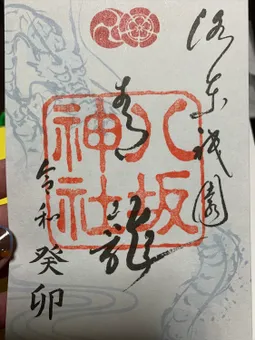 洛東祇園
八坂
神社
青龍
令和
癸卯